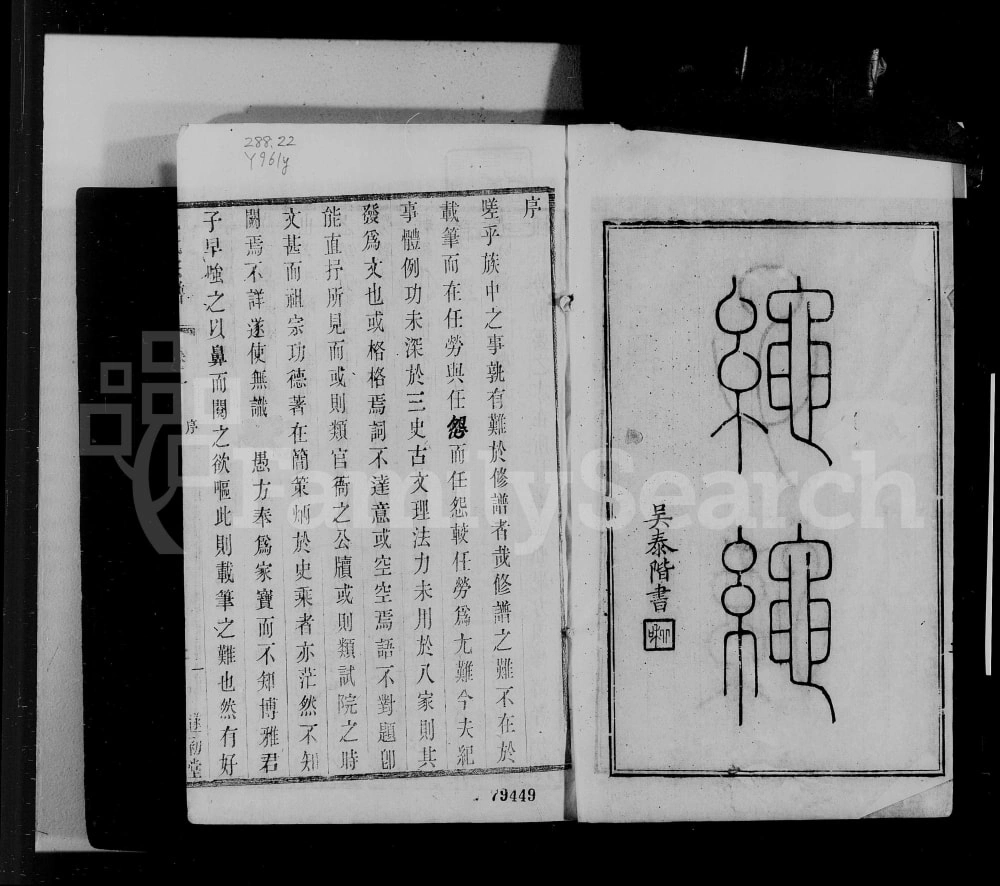 繩繩
吴泰階書
288.22
Y961y
序
嗟乎族中之事孰有難於修譜者哉修譜之難不在於
載筆而在任勞與任怨而任怨較任勞爲尤難今夫紀
事體例功未深於三史古文理法力未用於八家則其
發爲文也或格格焉詞不達意或空空焉語不對題卽
能直抒所見而或則類官衙之公牘或則類試院之時
文甚而祖宗功德著在簡策炳於史乘者亦茫然不知
闕焉不詳遂使無識 愚方奉爲家寶而不知博雅君
子早強之以鼻而閱之欲嘔此則載筆之難也然有好
卷一
序
一
堂
79449
FamilySearch